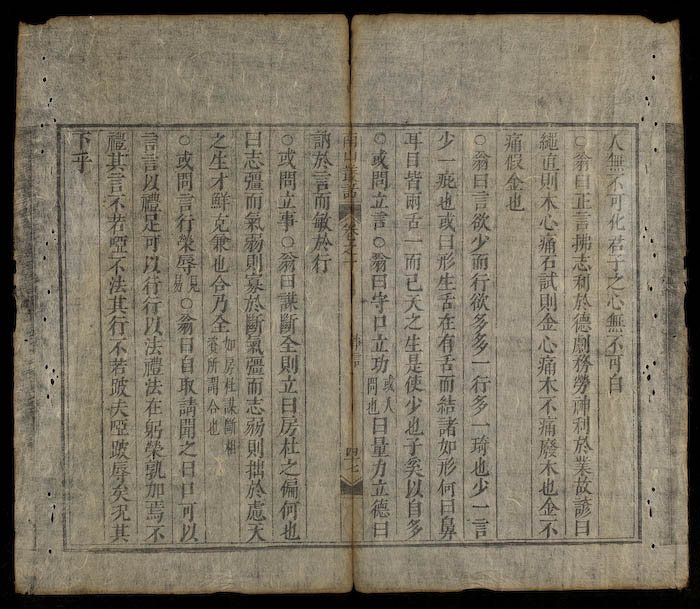 人無不可化君子之心無不可白
○翁曰正言拂志利於德劇務勞神利於業故諺曰
繩直則木心痛石試則金心痛木不痛廢木也金不
痛假金也
○翁曰言欲少而行欲多多一行多一琦也少一言
少一疵也或曰形生舌在有舌而結諸如形何曰鼻
耳目皆兩舌一而已天之生是使少也子奚以自多
○或問立言○翁曰守口立功或人問也曰量力立德曰
南山叢話 卷之
四七
訥於言而敏於行
○或問立事○翁曰謀斷全則立曰房杜之偏何也
曰志彊而氣弱則寡於斷氣彊而志弱則拙於慮天
之生才鮮克兼也合乃全如房杜謀斷相資所謂合也
○或問言行榮辱見易○翁曰自取請聞之曰口可以
言言以禮足可以行行以法禮法在躬榮孰加焉不
禮其言不若啞不法其行不若跛夫啞跛辱矣況其
下乎